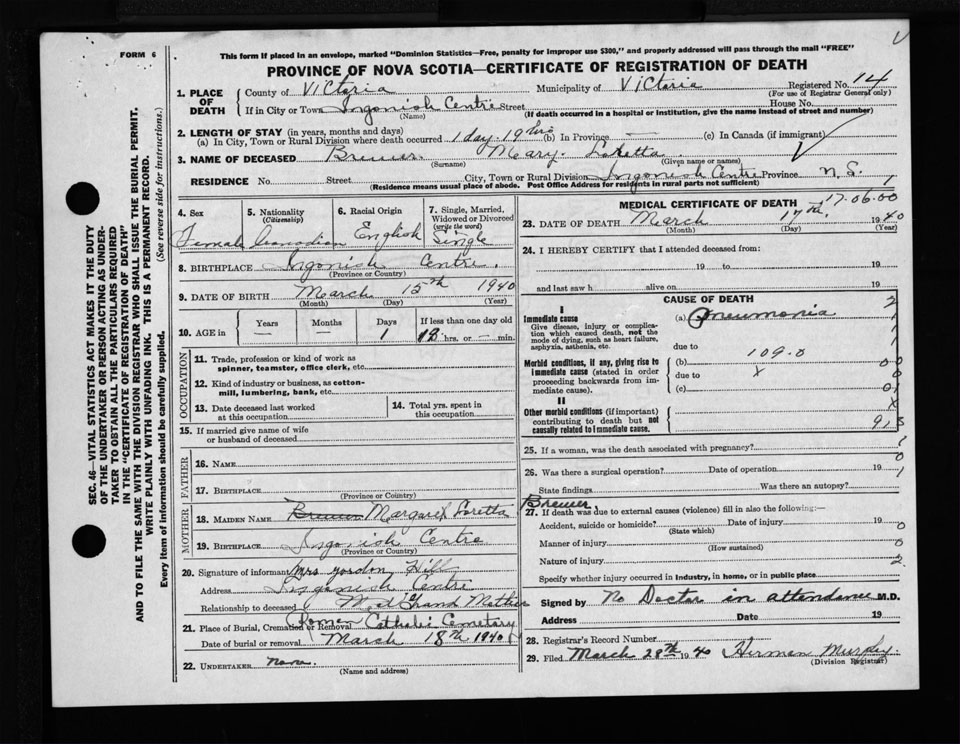 FORM 6
This form if placed in an envelope, marked "Dominion Statistics—Free, penalty for improper use $300," and properly addressed will pass through the mail "FREE"
PROVINCE OF NOVA SCOTIA—CERTIFICATE OF REGISTRATION OF DEATH
1. PLACE OF DEATH
County of Victoria Municipality of Victoria Registered No. 14
(For use of Registrar General only)
If in City or Town Ingonish Centre Street House No.
(Name) (If death occurred in a hospital or institution, give the name instead of street and number)
2. LENGTH OF STAY (in years, months and days)
(a) In City, Town or Rural Division where death occurred 1 day. 19 hrs (b) In Province — (c) In Canada (if immigrant)
3. NAME OF DECEASED Brewer Mary Loretta
(Surname) (Given name or names)
RESIDENCE No. Street City, Town or Rural Division Ingonish Centre Province N.S.
(Residence means usual place of abode. Post Office Address for residents in rural parts not sufficient)
SEC. 46—VITAL STATISTICS ACT MAKES IT THE DUTY
OF THE UNDERTAKER OR PERSON ACTING AS UNDER-
TAKER TO OBTAIN ALL THE PARTICULARS REQUIRED
IN THE "CERTIFICATE OF REGISTRATION OF DEATH"
AND TO FILE THE SAME WITH THE DIVISION REGISTRAR WHO SHALL ISSUE THE BURIAL PERMIT.
WRITE PLAINLY WITH UNFADING INK. THIS IS A PERMANENT RECORD.
Every item of information should be carefully supplied. (See reverse side for instructions.)
4. Sex
Female
5. Nationality
(Citizenship)
Canadian
6. Racial Origin
English
7. Single, Married,
Widowed or Divorced
(write the word)
Single
8. BIRTHPLACE Ingonish Centre.
(Province or Country)
9. DATE OF BIRTH March 15th 1940
(Month) (Day) (Year)
10. AGE in Years Months Days If less than one day old
— — 1 hrs. or — min.
OCCUPATION
11. Trade, profession or kind of work as
spinner, teamster, office clerk, etc.
12. Kind of industry or business, as cotton-
mill, lumbering, bank, etc.
13. Date deceased last worked
at this occupation
14. Total yrs. spent in
this occupation
15. If married give name of wife
or husband of deceased
FATHER
16. NAME
17. BIRTHPLACE
(Province or Country)
MOTHER
18. MAIDEN NAME Brewer Margaret Loretta
19. BIRTHPLACE Ingonish Centre
(Province or Country)
20. Signature of informant Mrs Gordon Hill
Address Ingonish Centre
Relationship to deceased Grand Mother
21. Place of Burial, Cremation or Removal Roman Catholic Cemetary
Date of burial or removal March 18th 1940
22. UNDERTAKER none.
(Name and address)
MEDICAL CERTIFICATE OF DEATH 17.06.00
23. DATE OF DEATH March 17th. 1940
(Month) (Day) (Year)
24. I HEREBY CERTIFY that I attended deceased from:
19 to 19
and last saw h alive on 19
CAUSE OF DEATH
I
Immediate cause
Give disease, injury or complica-
tion which caused death, not the
mode of dying, such as heart failure,
asphyxia, asthenia, etc.
(a) Pneumonia
due to
Morbid conditions, if any, giving rise to
immediate cause (stated in order
proceeding backwards from im-
mediate cause).
(b) 109.0
due to x
(c)
II
Other morbid conditions (if important)
contributing to death but not
causally related to immediate cause.
25. If a woman, was the death associated with pregnancy?
26. Was there a surgical operation? Date of operation 19
State findings Was there an autopsy?
Brewer
27. If death was due to external causes (violence) fill in also the following:—
Accident, suicide or homicide? Date of injury 19
(State which)
Manner of injury
(How sustained)
Nature of injury
Specify whether injury occurred in industry, in home, or in public place
Signed by No Doctor in attendance M.D.
Address Date 19
28. Registrar's Record Number
29. Filed March 28th 1940 Herman Murphy.
(Division Registrar)